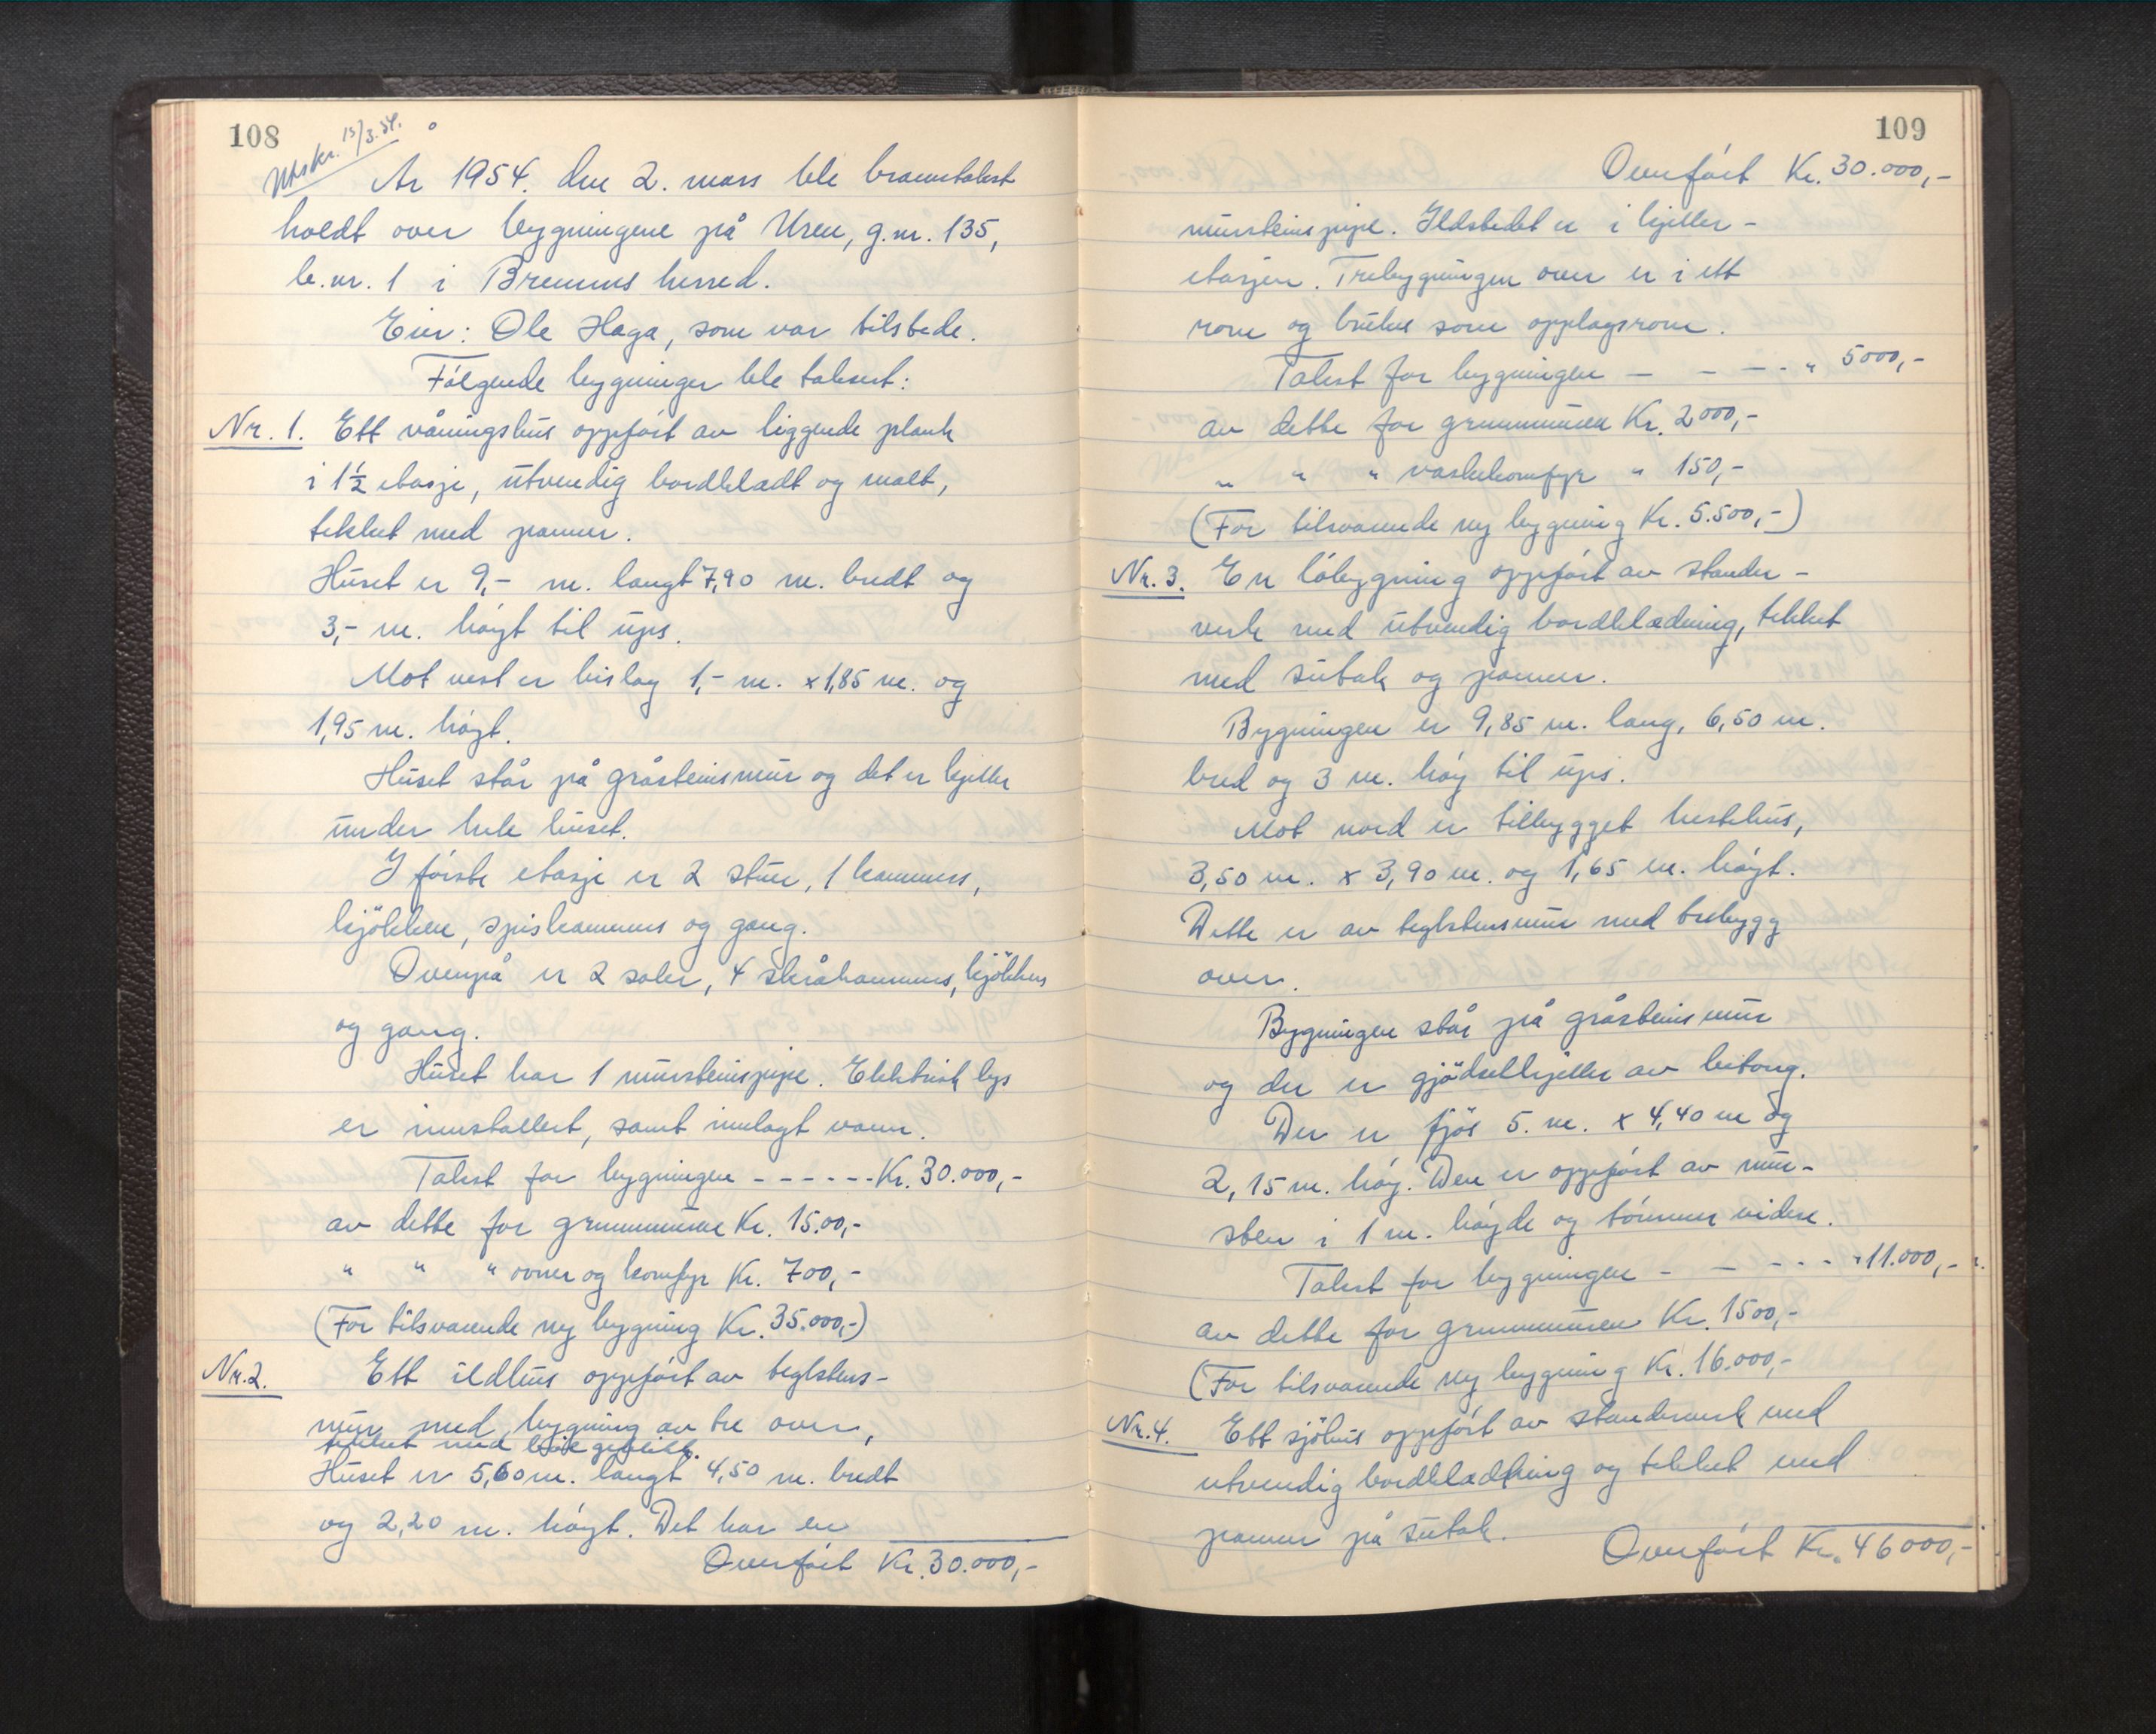 108
Utskr. 15/3.54.
År 1954. den 2. mars ble branntakst
holdt over bygningene på Uren, g.nr. 135,
b.nr. 1 i Bremnes herred.
Eier: Ole Haga, som var tilstede.
Følgende bygninger ble taksert:
Nr. 1. Ett våningshus oppført av liggende plank
i 1½ etasje, utvendig bordkledt og malt,
tekket med panner.
Huset er 9,- m. langt 7,90 m. bredt og
3,- m. høgt til ups.
Mot vest er bislag 1,- m. x 1,85 m. og
1,95 m. høgt.
Huset står på gråsteinsmur og det er kjeller
under hele huset.
I første etasje er 2 stuer, 1 kammers,
kjøkken, spiskammers og gang.
Ovenpå er 2 saler, 4 skråkammers, kjøkken
og gang.
Huset har 1 mursteinspipe. Elektrisk lys
er innstallert, samt innlagt vann.
Takst for bygningen - - - - - - Kr. 30.000,-
av dette for grunnmuren Kr. 15.00,-
" " " ovner og komfyr Kr. 700,-
(For tilsvarende ny bygning Kr. 35.000,-)
Nr. 2. Ett ildhus oppført av teglstens-
mur med bygning av tre over,
tekket med
Huset er 5,60 m. langt 4,50 m. bredt
og 2,20 m. høgt. Det har en
Overført Kr. 30.000,-
109
Overført Kr. 30.000,-
mursteinspipe. Ildstedet er i kjeller-
etasjen. Trebygningen over er i ett
rom og brukes som opplagsrom.
Takst for bygningen - - - - " 5000,-
av dette for grunnmuren Kr. 2000,-
" " " vaskekomfyr " 150,-
(For tilsvarende ny bygning Kr. 5.500,-)
Nr. 3. En løbygning oppført av stender-
verk med utvendig bordkledning, tekket
med sutak og panner.
Bygningen er 9,85 m. lang, 6,50 m.
bred og 3 m. høg til ups.
Mot nord er tilbygget hestehus,
3,50 m. x 3,90 m. og 1,65 m. høgt.
Dette er av teglstensmur med trebygg
over.
Bygningen står på gråsteinsmur
og der er gjødselkjeller av betong.
Der er fjøs 5. m. x 4,40 m og
2,15 m. høg. Den er oppført av mur-
sten i 1 m. høgde og tømmer videre.
Takst for bygningen - - - - - " 11.000,-
av dette for grunnmuren Kr. 1500,-
(For tilsvarende ny bygning Kr. 16.000,-
Nr. 4. Ett sjøhus oppført av stenderverk med
utvendig bordkledning og tekket med
panner på sutak.
Overført Kr. 46000,-